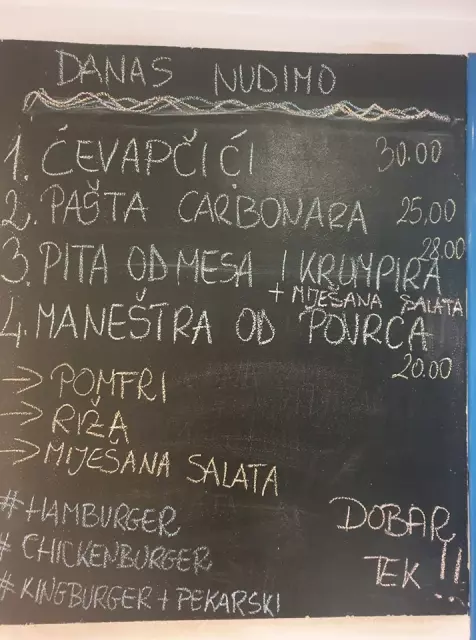 DANAS NUDIMO
1. ĆEVAPČIĆI 30.00
2. PAŠTA CARBONARA 25,00
28.00
3. PITA OD MESA I KRUMPIRA
+ MIJEŠANA SALATA
4. MANEŠTRA OD POVRĆA
20.00
→ POMFRI
→ RIŽA
→ MIJEŠANA SALATA
# HAMBURGER
# CHICKENBURGER
# KINGBURGER + PEKARSKI
DOBAR
TEK !!...